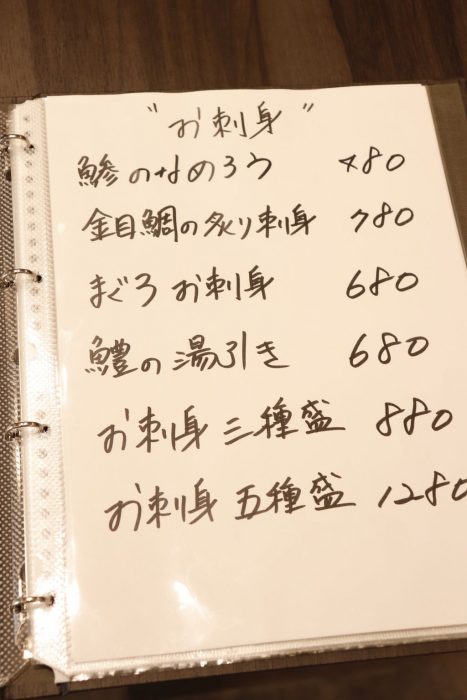 "お刺身"
鯵のなめろう 480
金目鯛の炙り刺身 780
まぐろお刺身 680
鱧の湯引き 680
お刺身三種盛 880
お刺身五種盛 1280